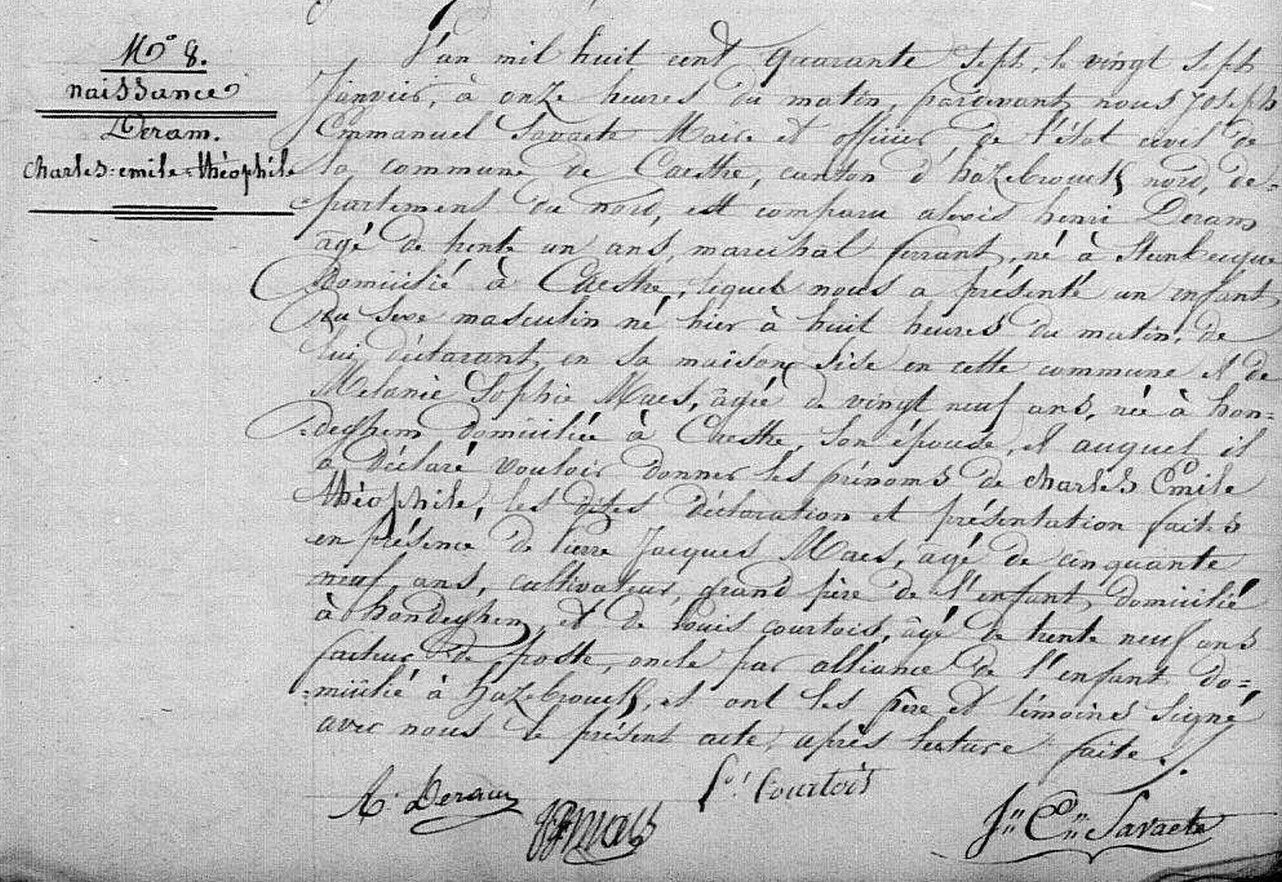 N.° 8.
naissance
Deram.
charles-emile-théophile
L'an mil huit cent quarante sept, le vingt sept
Janvier, à onze heures du matin, pardevant nous Joseph
Emmanuel Savaete Maire et officier de l'état civil de
la commune de Caestre, canton d'hazebrouck nord, dé=
=partement du nord, est comparu alois henri Deram
âgé de trente un ans, maréchal ferrant, né à Steenbecque
Domicilié à Caestre, lequel nous a présenté un enfant
Du sexe masculin né hier à huit heures du matin, de
lui déclarant en sa maison sise en cette commune et de
Melanie Sophie Maes, âgée de vingt neuf ans, née à hon=
=deghem domiciliée à Caestre, son épouse, et auquel il
a déclaré vouloir donner les prénoms de charles Emile
théophile, les dites déclaration et présentation faites
en présence de Pierre Jacques Maes, âgé de cinquante
neuf ans, cultivateur, grand père de l'enfant, domicilié
à hondeghem, et de Louis courtois, âgé de trente neuf ans
facteur de poste, oncle par alliance de l'enfant do=
=micilié à hazebrouck, et ont les père et témoins signé
avec nous le présent acte, après lecture faite.
A. Deram
PJ Maes
L.s Courtois
J.h E.l Savaete